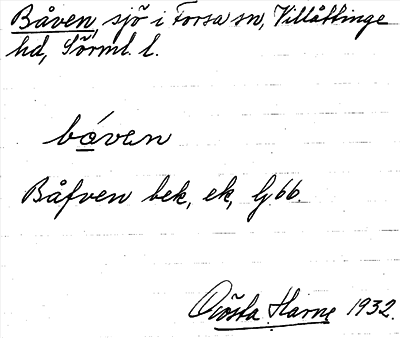 Båven, sjö i Forsa sn, Villåttinge
hd, Sörml. l.
bóven
Båfven bek, ek, G66.
Gösta Harne 1932.